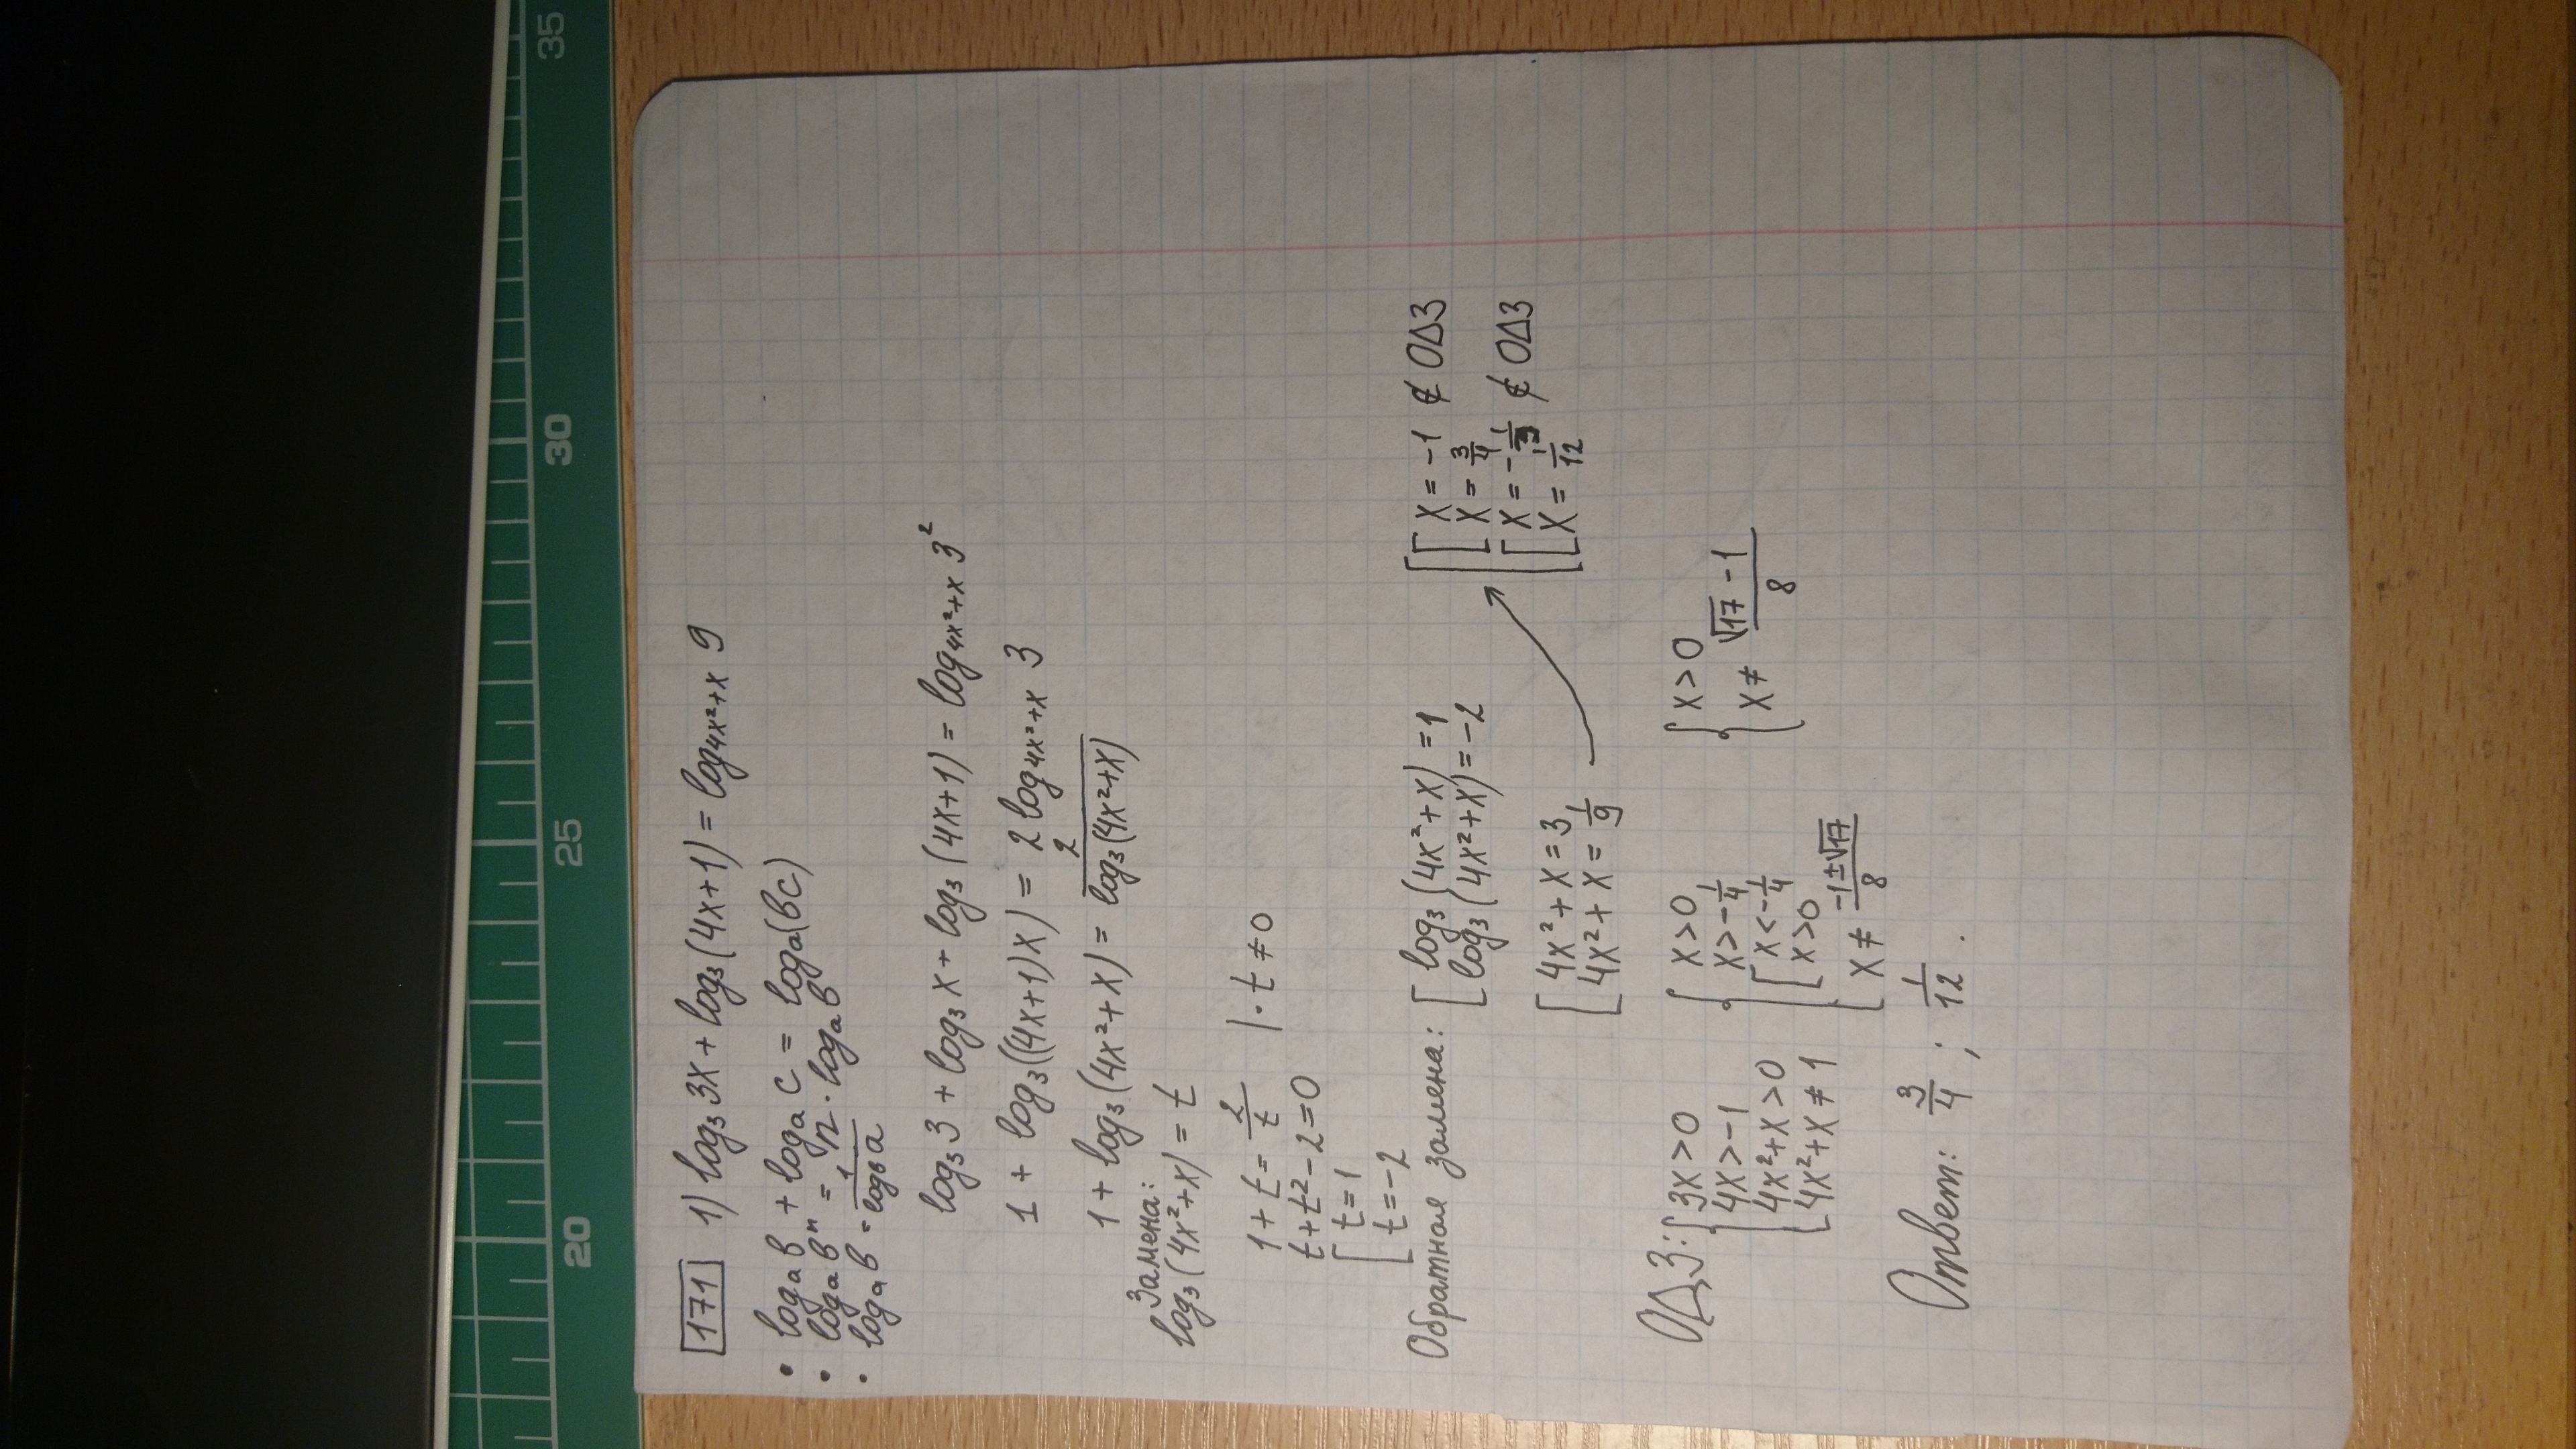 171 1) log₃3x + log₃(4x+1) = log₄ₓ²₊ₓ 9
• logₐb + logₐc = logₐ(bc)
• logₐbⁿ = n · logₐb
• logₐb = 1/log_b a
log₃3 + log₃x + log₃(4x+1) = log₄ₓ²₊ₓ 3²
1 + log₃((4x+1)x) = 2 log₄ₓ²₊ₓ 3
1 + log₃(4x²+x) = 2/log₃(4x²+x)
Замена:
log₃(4x²+x) = t
1 + t = 2/t |· t ≠ 0
t + t² - 2 = 0
[ t = 1
[ t = -2
Обратная замена: [ log₃(4x²+x) = 1
[ log₃(4x²+x) = -2
[ 4x²+x = 3
[ 4x²+x = 1/9
[ [ x = -1 ∉ ОДЗ
[ x = 3/4
[ x = -1/3 ∉ ОДЗ
[ x = 1/12
ОДЗ: { 3x > 0
4x > -1
4x²+x > 0
4x²+x ≠ 1
{ x > 0
x > -1/4
[ x < -1/4
[ x > 0
x ≠ (-1±√17)/8
{ x > 0
x ≠ (√17 - 1)/8
Ответ: 3/4 ; 1/12 .
20 25 30 35